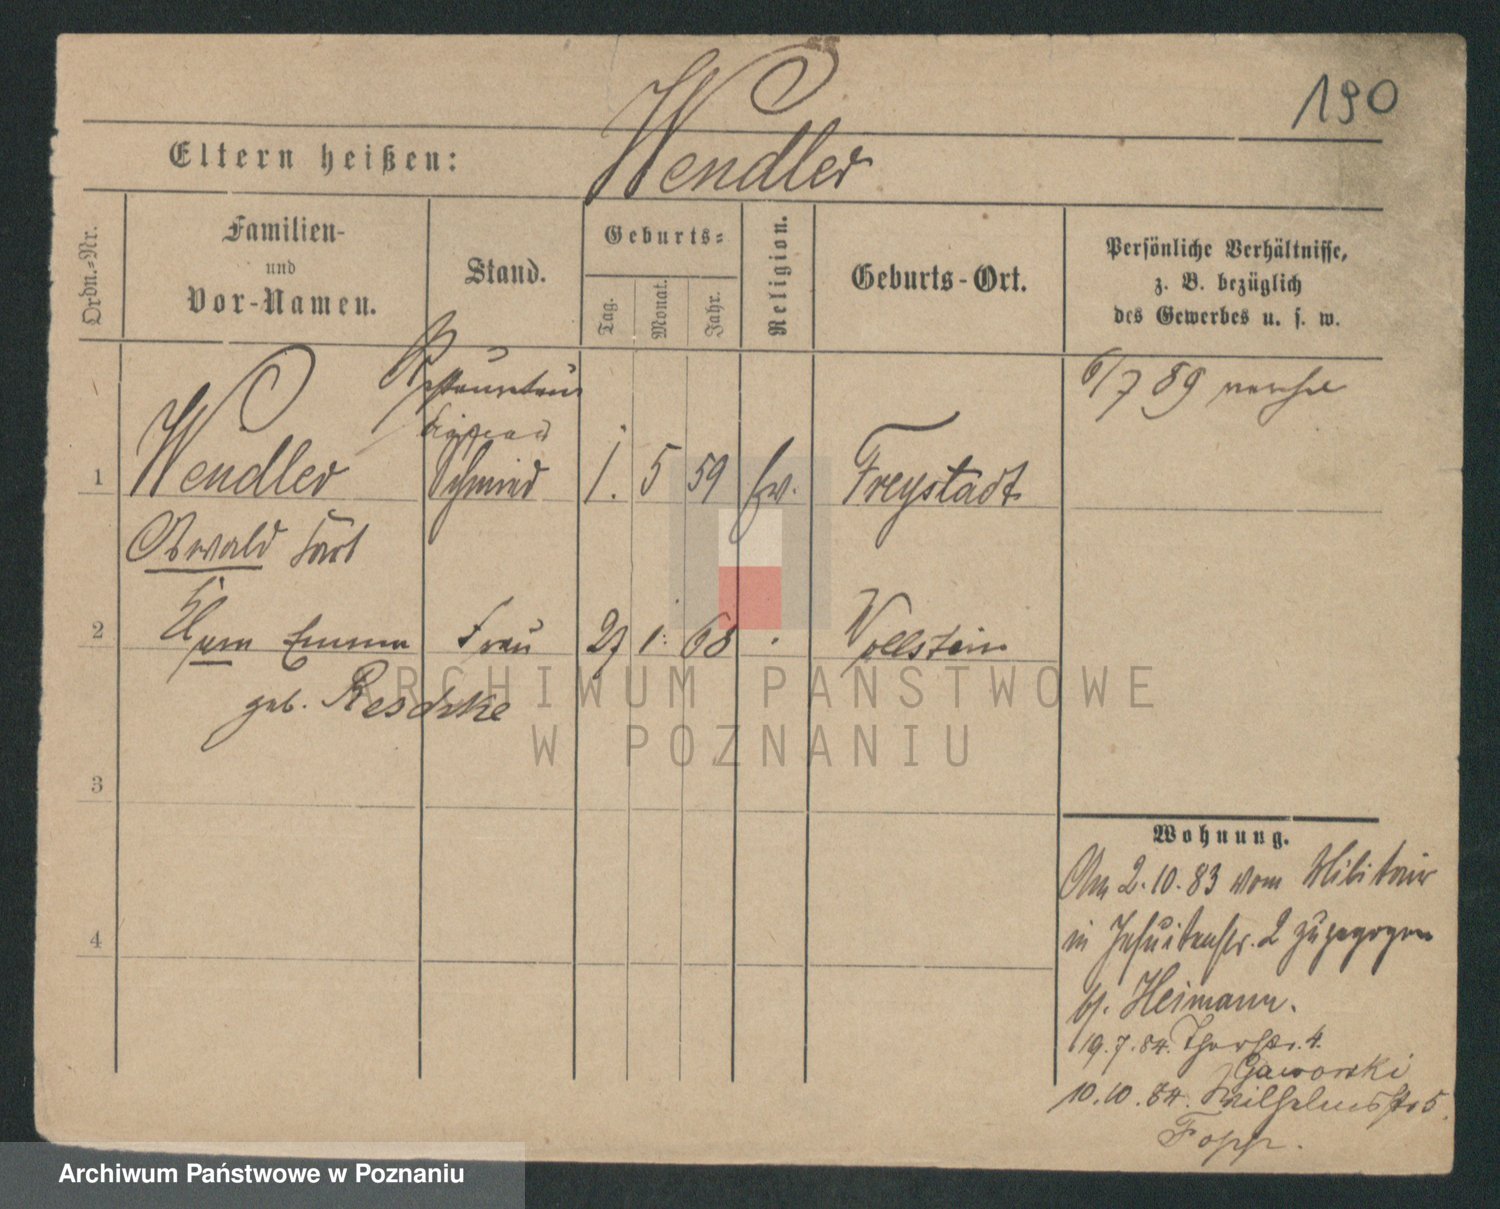 190
Wendler
Eltern heißen:
Ordn.=Nr.
Familien-
und
Vor-Namen.
Stand.
Geburts=
Tag.
Monat.
Jahr.
Religion.
Geburts-Ort.
Persönliche Verhältnisse,
z. B. bezüglich
des Gewerbes u. s. w.
Restaurateur
6/7 89
1 Wendler Schmied 1. 5 59 ev. Freystadt
Oswald Carl
2 Emma Frau 27 1. 68 Wollstein
geb. Reschke
ARCHIWUM PAŃSTWOWE
W POZNANIU
3
4
Wohnung.
Am 2.10.83 vom Militair
in Jesuitenstr. 2 zugezogen
b/. Heimann.
19.7.84. Thorstr. 4.
Gaworski
10.10.84. Wilhelmsstr 5.
Archiwum Państwowe w Poznaniu